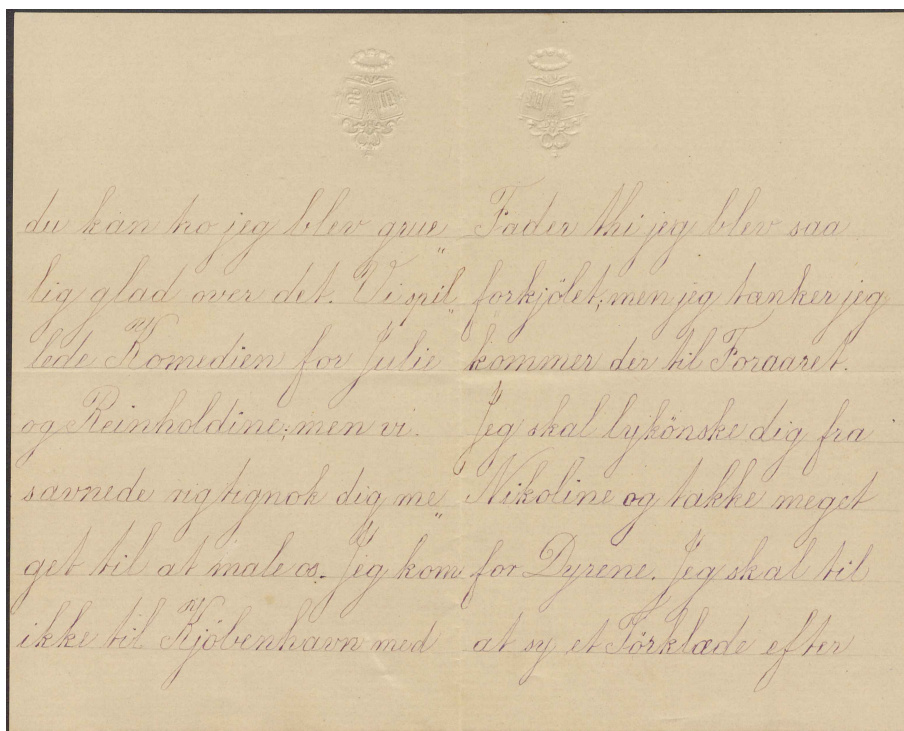 du kan tro jeg blev grue„
lig glad over det. Vi spil„
lede Komedien for Julie
og Reinholdine; men vi
savnede rigtignok dig me„
get til at male os. Jeg kom
ikke til Kjöbenhavn med
Fader thi jeg blev saa
forkjölet; men jeg tænker jeg
kommer der til Foraaret.
Jeg skal lykönske dig fra
Nikoline og takke meget
for Dyrene. Jeg skal til
at sy et Förklæde efter